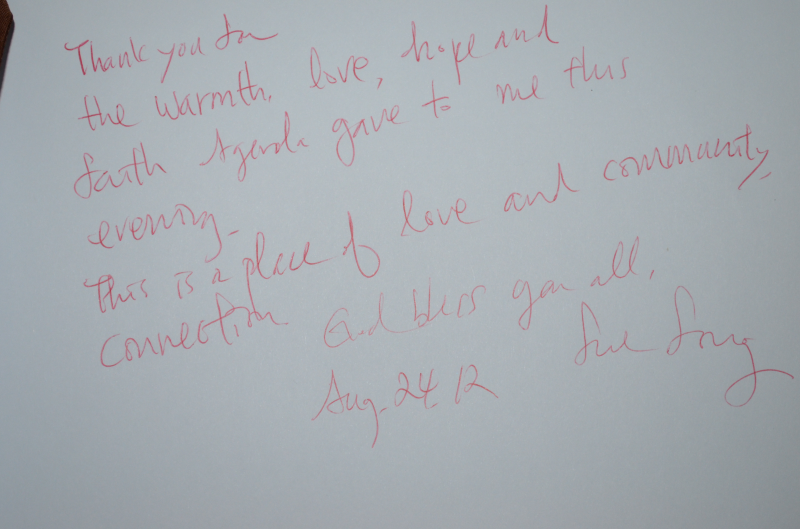 Thank you for
the warmth, love, hope and
faith Agenda gave to me this
evening.
This is a place of love and community,
connection God bless you all.
Aug. 24. 12 Sue Song